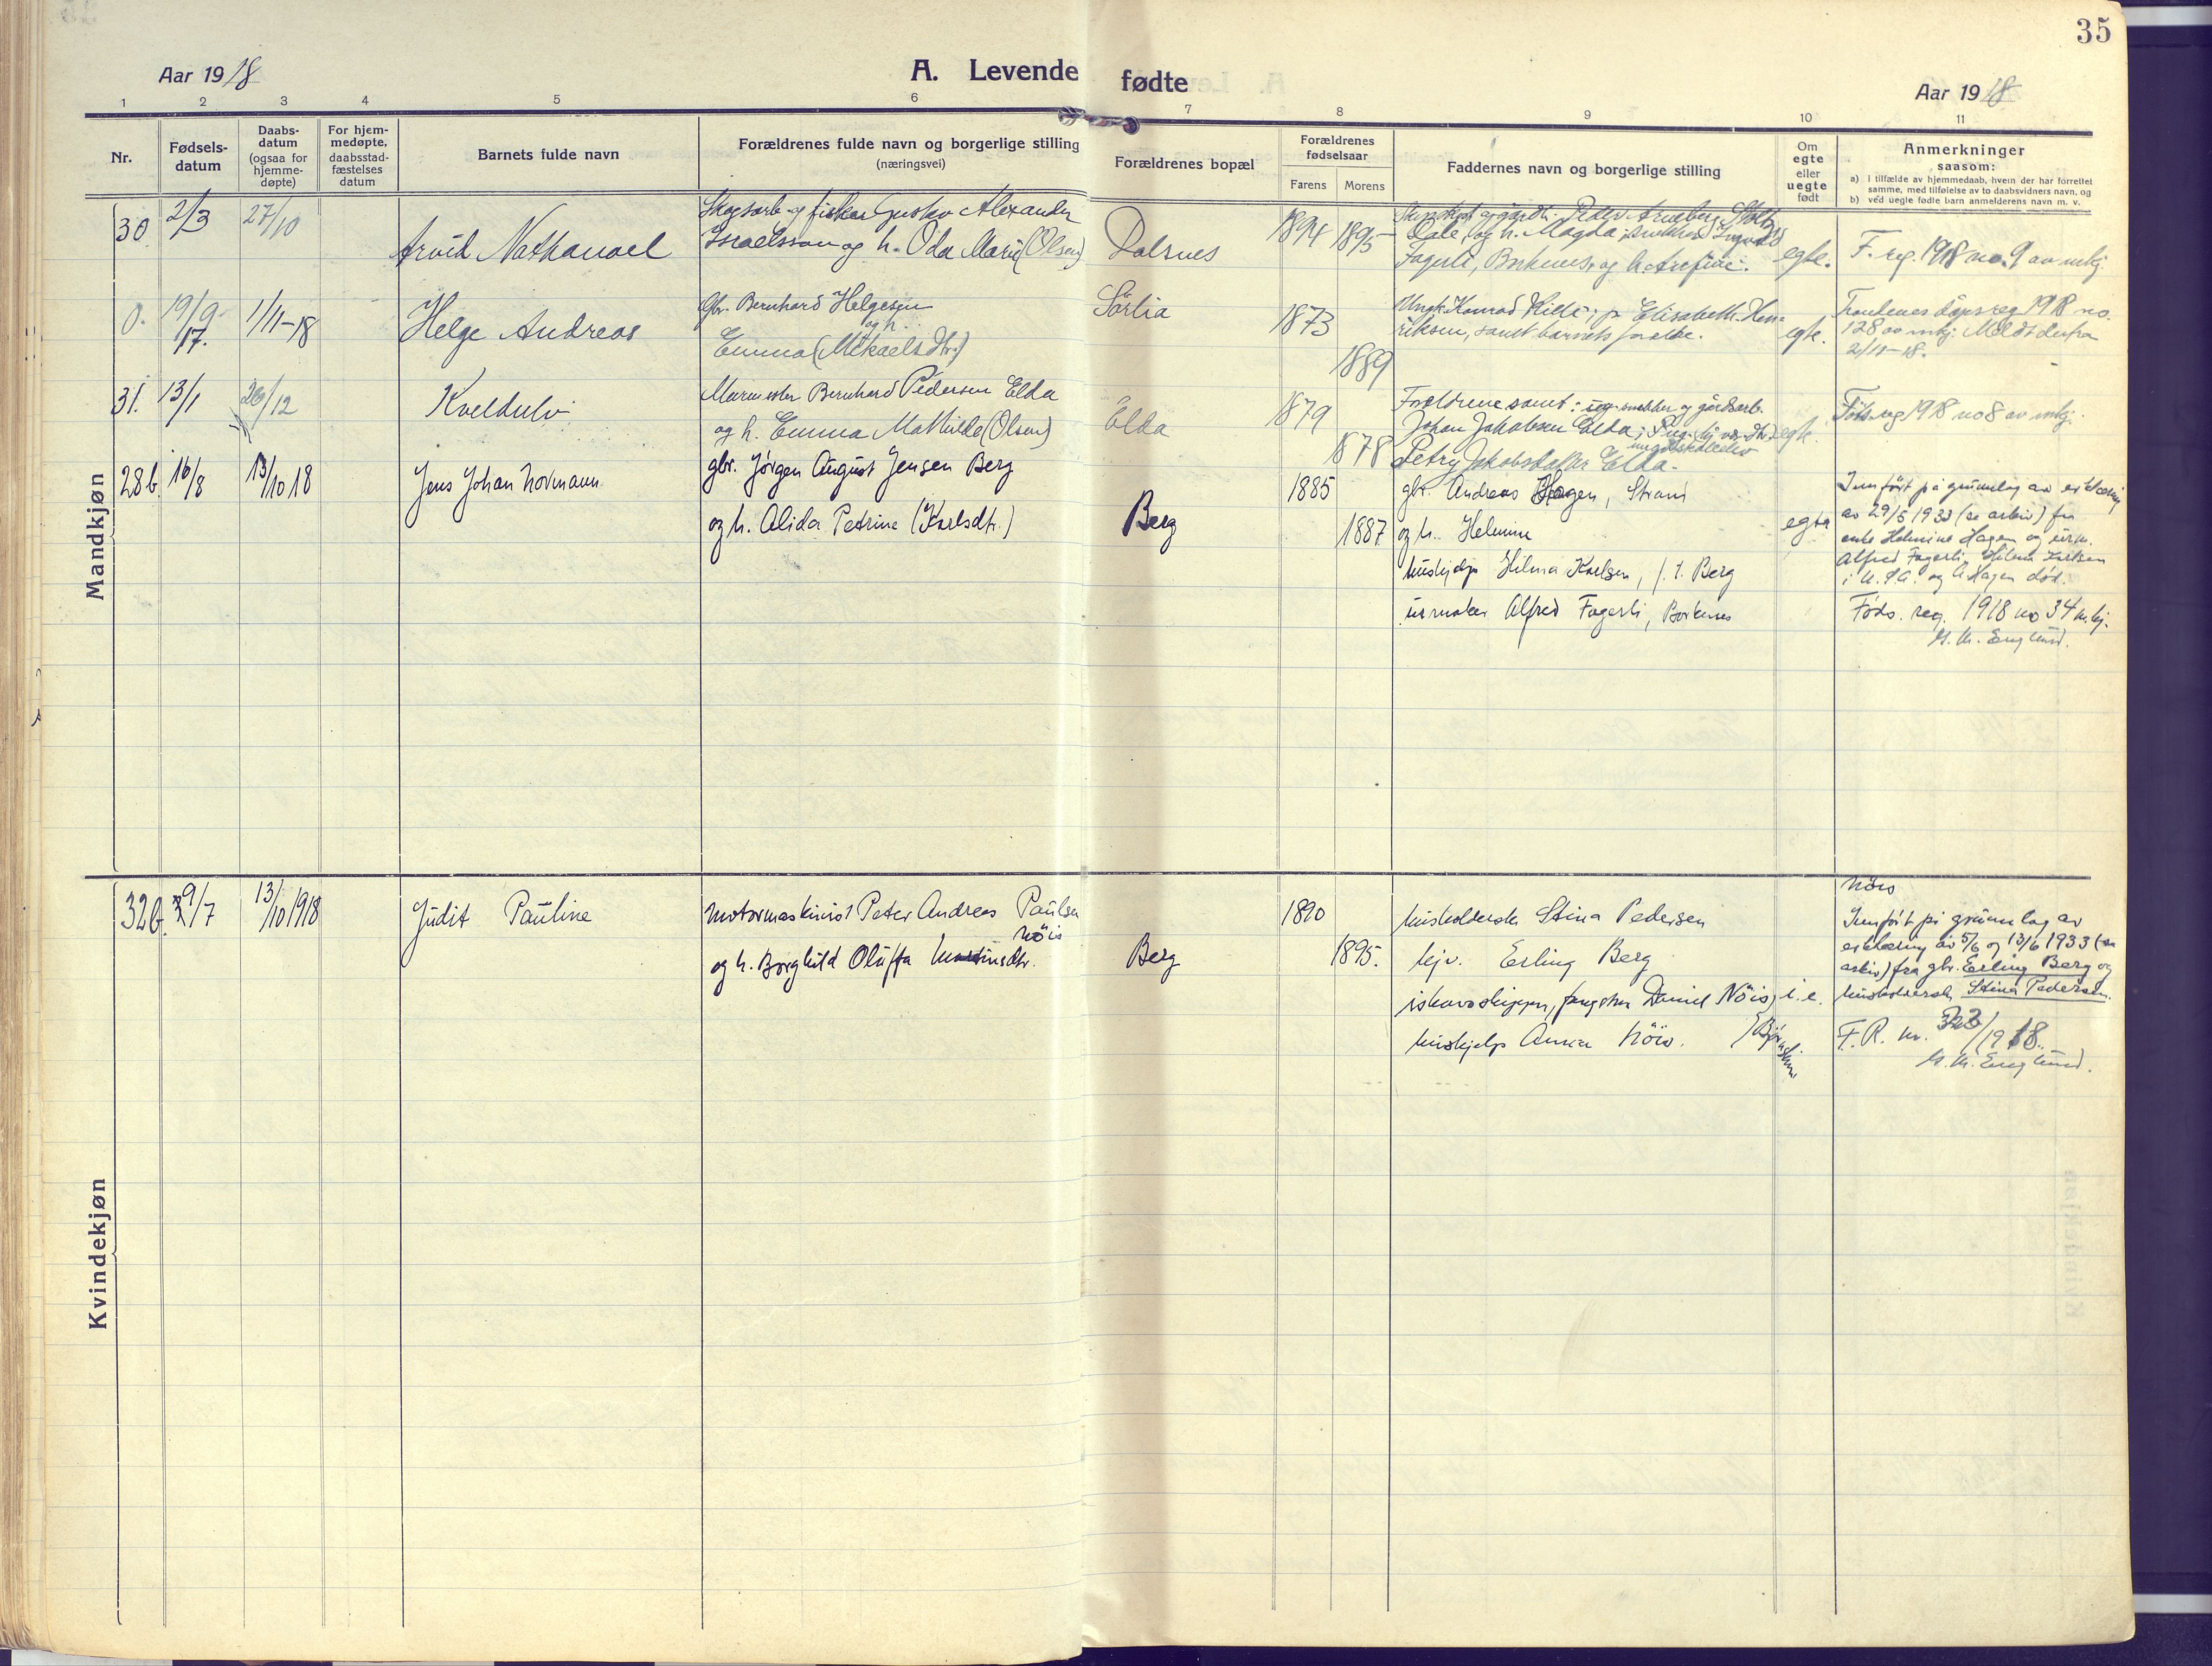 35
Aar 1918
A. Levende fødte
Aar 1918
1 2 3 4 5 6 7 8 9 10 11
Nr.
Fødsels-
datum
Daabs-
datum
(ogsaa for
hjemme-
døpte)
For hjem-
medøpte,
daabsstad-
fæstelses
datum
Barnets fulde navn
Forældrenes fulde navn og borgerlige stilling
(næringsvei)
Forældrenes bopæl
Forældrenes
fødselsaar
Farens Morens
Faddernes navn og borgerlige stilling
Om
egte
eller
uegte
født
Anmerkninger
saasom:
a) I tilfælde av hjemmedaab, hvem der har forrettet
samme, med tilføielse av to daabsvidners navn, og
b) ved uegte fødte barn anmelderens navn m. v.
Mandkjøn
30 2/3 27/10
Arvid Nathanael
Skogsarb. og fisker Gustav Alexander
Israelsson og h. Oda Marie (Olsen)
Dalsnes
1894 1895
Dale, og h. Magda;
Fagerli, Borkenes, og h.
egte.
F. reg. 1918 no. 9 av mkj.
0. 19/9-17. 1/11-18
Helge Andreas
Gbr. Bernhard Helgesen
og h.
Emma (Mikaelsdtr.)
Sørlia
1873
1889
Ungk. Konrad Kilde; p. Elisabeth Hen-
riksen, samt barnets foreldre.
egte.
Trondenes dåpsreg 1918 no.
128 av mkj. Meldt derfra
2/11-18.
31. 13/1 26/12
Kveldulv
Murmester Bernhard Pedersen Elda
og h. Emma Mathilde (Olsen)
Elda
1879
1878
Foreldrene samt: snekker og gårdsarb.
Johan Jakobsen Elda;
Petry Jakobsdatter Elda.
egte.
Føds.reg 1918 no 8 av mkj.
28b. 16/8 13/10 18
Jens Johan Normann
gbr. Jørgen August Jensen Berg
og h. Alida Petrine (Karlsdtr.)
Berg
1885
1887
gbr. Andreas Hagen, Strand
og h. Helmine
hushjelp Hilma Karlsen, f. t. Berg
urmaker Alfred Fagerli, Borkenes
egte
Innført på grunnlag av erklæring
av 29/5 1933 (se arkiv) fra
enke Helmine Hagen og urm.
Alfred Fagerli. Hilma Karlsen
i U.S.A. og A Hagen død.
Føds. reg. 1918 no 34 m.kj.
Kvindekjøn
32b. 29/7 13/10 1918
Judit Pauline
motormaskinist Peter Andreas Paulsen
Nøis
og h. Borghild Oluffa Martinsdtr.
Berg
1890
1895.
husholdersk Stina Pedersen
kjv. Erling Berg
ishavsskipper, fangstm Daniel Nøis,
hushjelp Anna Nøis.
i. e.
Nøis
Innført på grunnlag av
erklæring av 5/6 og 13/6 1933 (se
arkiv) fra gbr. Erling Berg og
husholdersk Stina Pedersen.
F. R. nr. /1918.